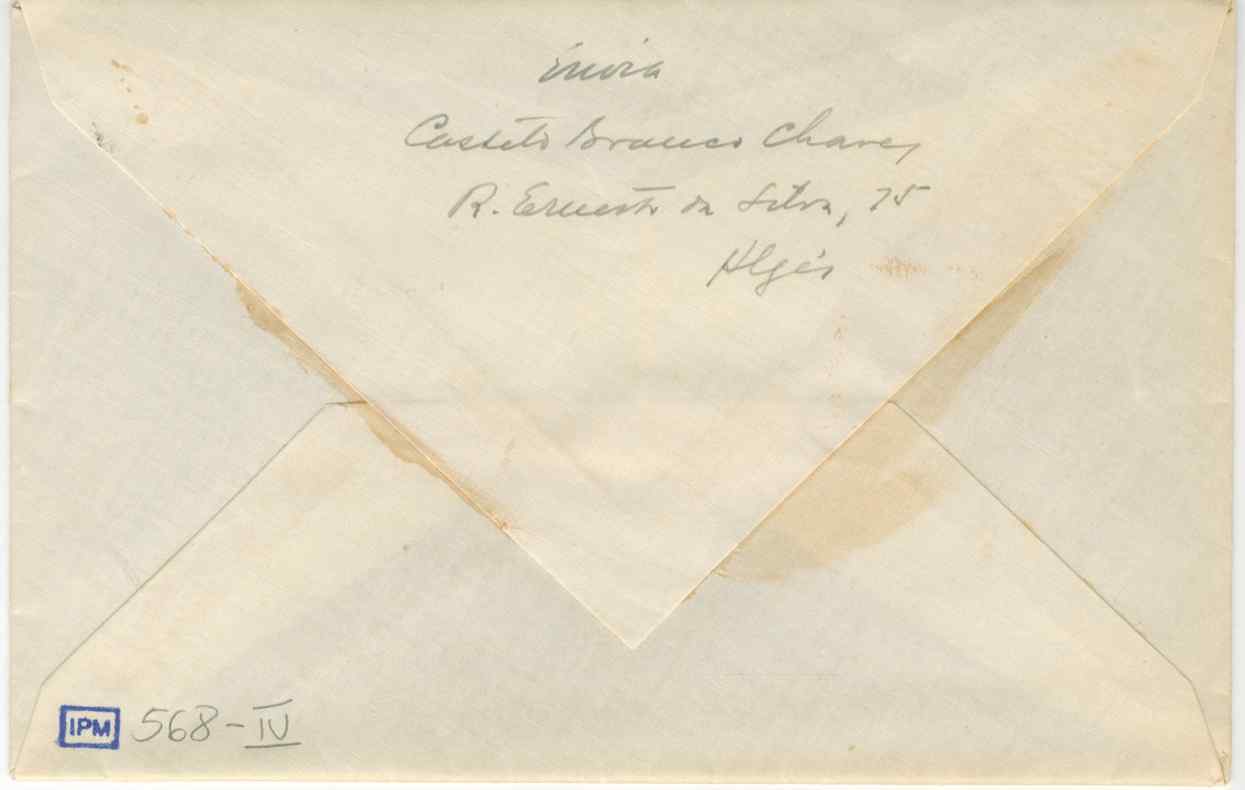 Envia
Castelo Branco Chaves
R. Ernesto da Silva, 75
Algés
IPM 568-IV